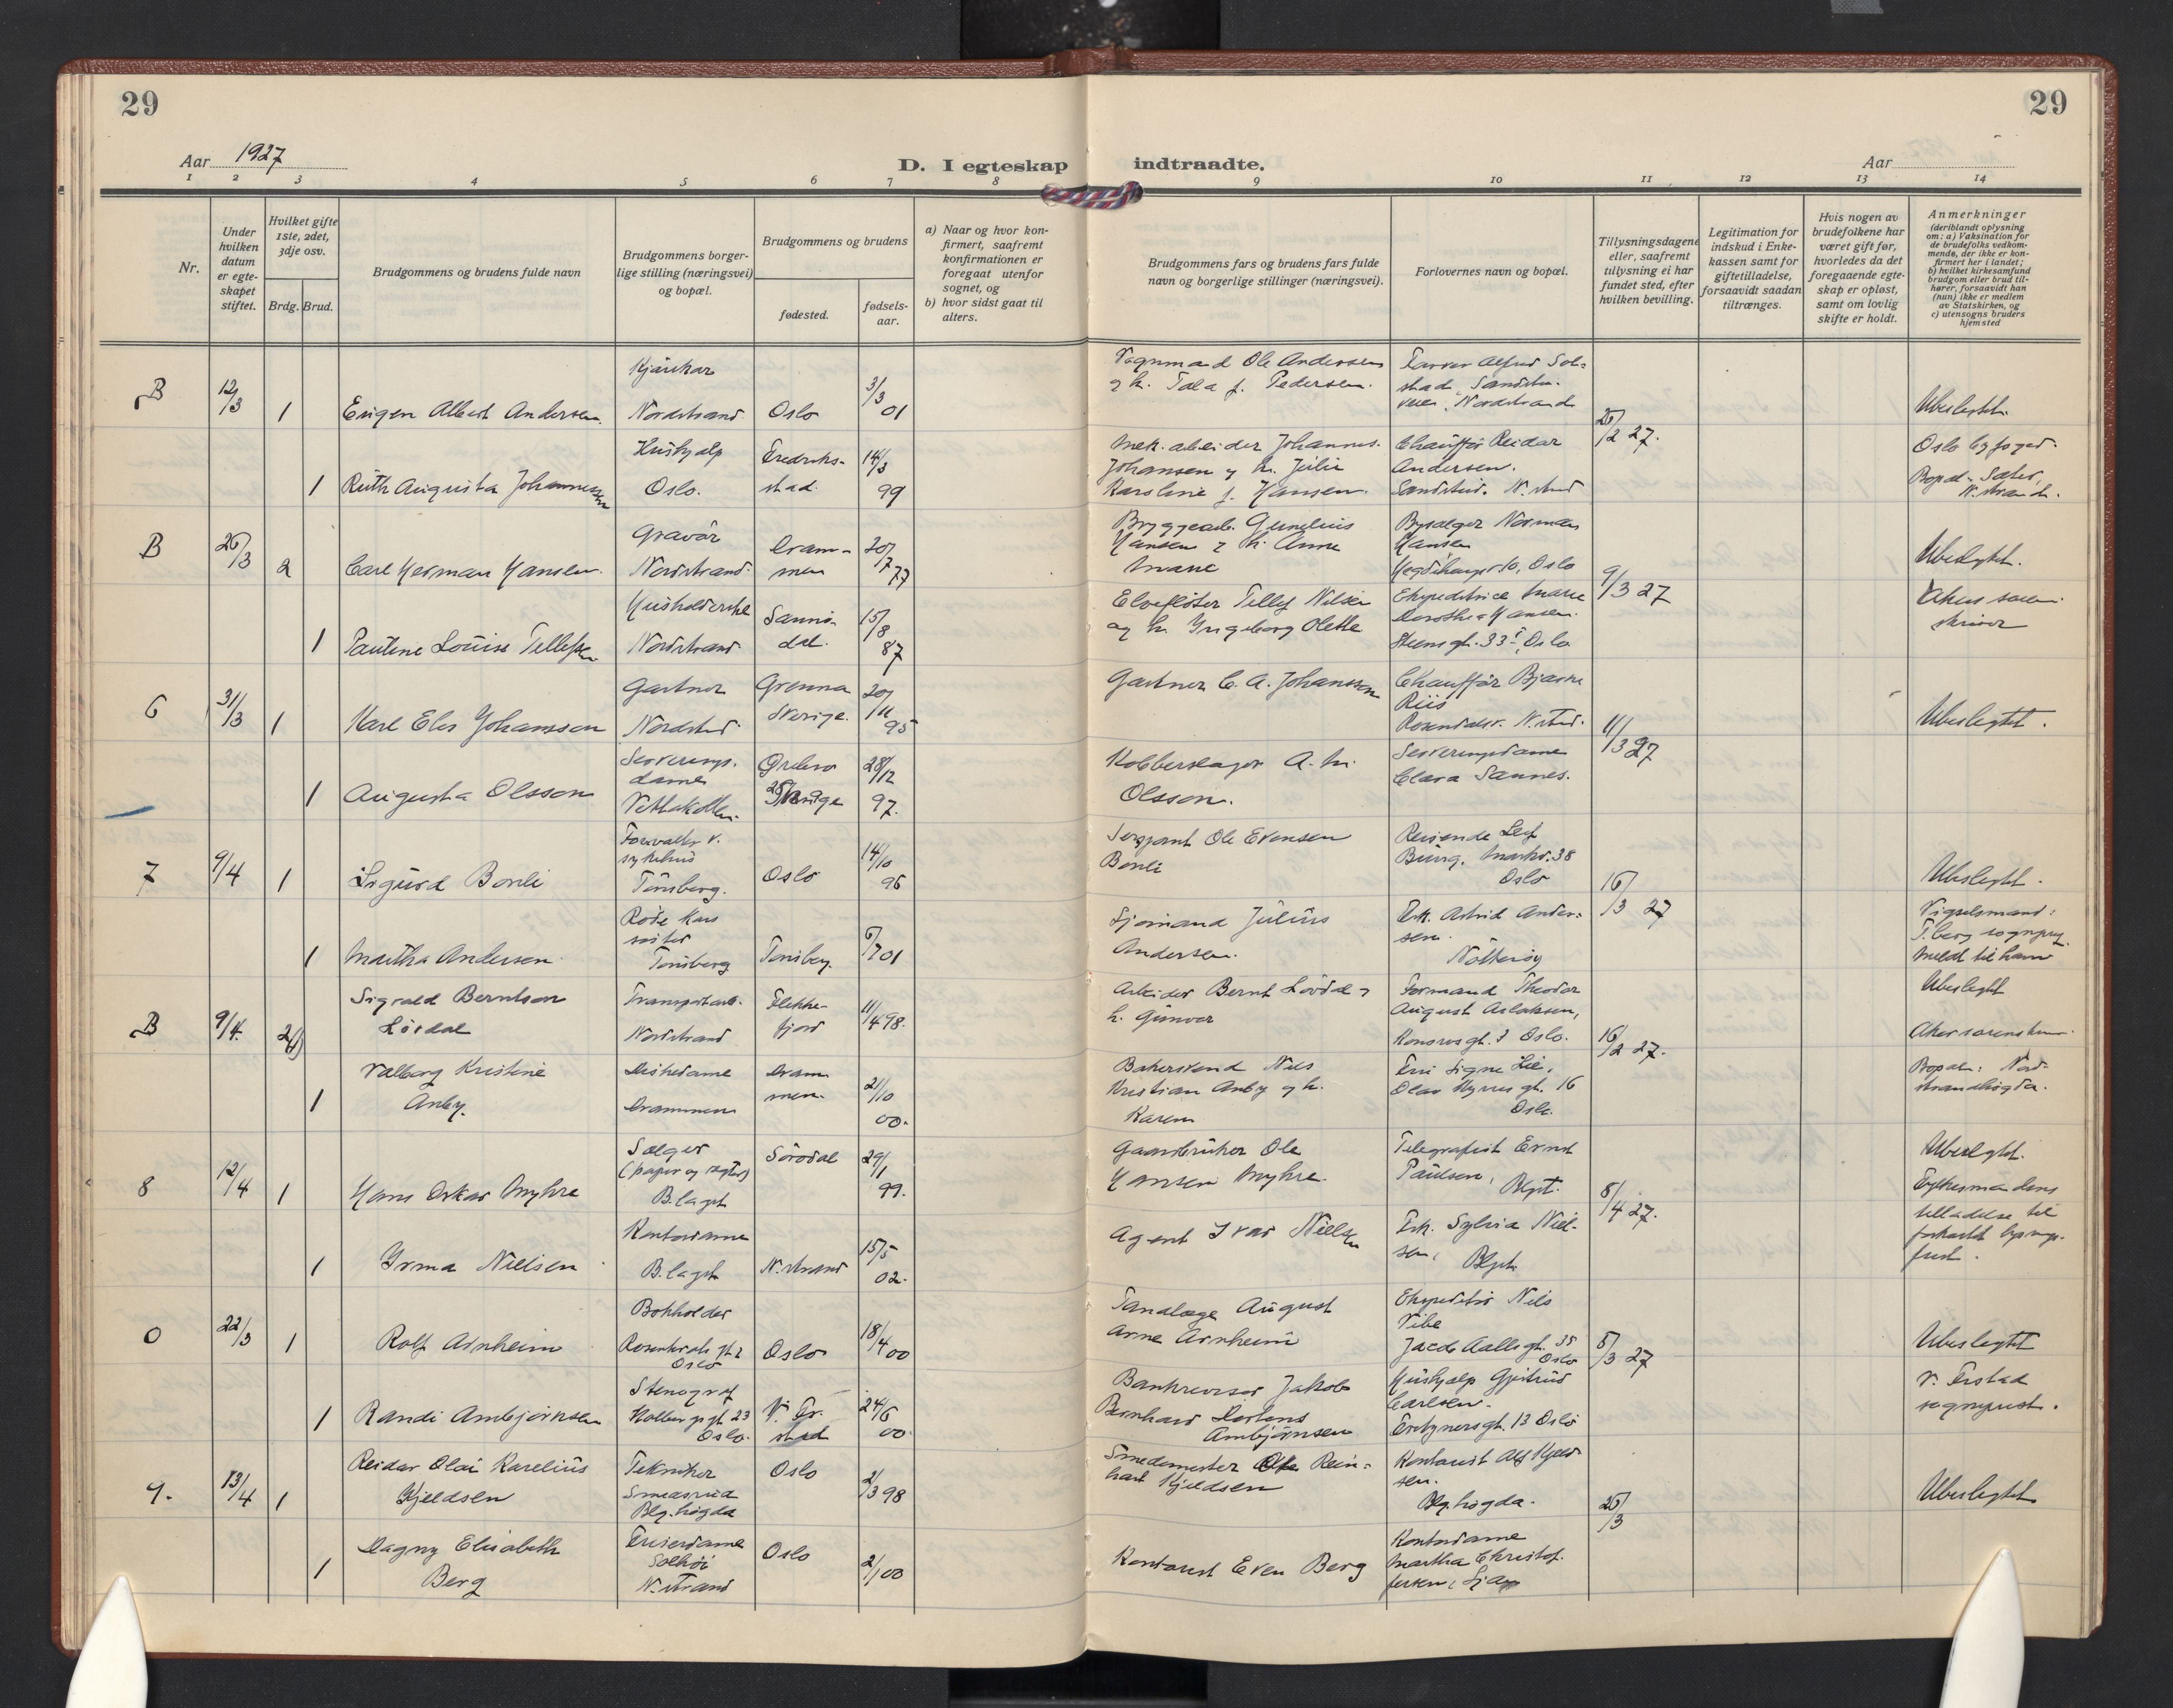 29
29
Aar 1927
D. I egteskap indtraadte.
Aar
1 2 3 4 5 6 7 8 9 10 11 12 13 14
Nr.
Under hvilken datum er egte-skapet stiftet.
Hvilket gifte 1ste, 2det, 3dje osv.
Brdg. Brud.
Brudgommens og brudens fulde navn
Brudgommens borger-
lige stilling (næringsvei)
og bopæl.
Brudgommens og brudens
fødested.
fødsels-
aar.
a) Naar og hvor kon-
firmert, saafremt
konfirmationen er
foregaat utenfor
sognet, og
b) hvor sidst gaat til
alters.
Brudgommens fars og brudens fars fulde
navn og borgerlige stillinger (næringsvei).
Forlovernes navn og bopæl.
Tillysningsdagene
eller, saafremt
tillysning ei har
fundet sted, efter
hvilken bevilling.
Legitimation for
indskud i Enke-
kassen samt for
giftetilladelse,
forsaavidt saadan
tiltrænges.
Hvis nogen av
brudefolkene har
været gift før,
hvorledes da det
foregaaende egte-
skap er opløst,
samt om lovlig
skifte er holdt.
Anmerkninger
(deriblandt oplysning
om: a) Vaksination for
de brudefolks vedkom-
mende, der ikke er kon-
firmert her i landet;
b) hvilket kirkesamfund
brudgom eller brud til-
hører, forsaavidt han
(hun) ikke er medlem
av Statskirken, og
c) utensogns bruders
hjemsted
B 12/3 1 Eugen Albert Andersen.
Nordstrand Oslo 3/3 01
Vognmand Ole Andersen
og h. Tala f. Pedersen.
Alfred Sol-
stad
Nordstrand
Ubeslegtet.
1 Ruth Augusta Johannessen
Hushjælp
Oslo.
Fredrik-
stad.
14/3 99
Mek. arbeider Johannes
Johansen og h. Julie
Karoline f. Hansen.
Chauffør Reidar
Andersen.
N. strd
26/2 27.
Oslo byfoged.
Bopæl: Sæter,
N. strand.
B 26/3 2 Carl Herman Hansen.
Gravør
Nordstrand.
Dram-
men
20/7 77
Bryggearb. Gunelius
Hansen og h. Anne
Marie
Bysælger Norman
Hansen
Oslo
9/3 27
Ubeslegtet.
1 Pauline Louise Tellefsen
Husholderske
Nordstrand
Sanni-
dal.
15/8 87
Elvefløter Tellef Nilsen
og h. Ingeborg Olette
Ekspeditrice Marie
Dorothea Hansen.
Steensgt. 33 I, Oslo
Aker soren-
skriver
6 31/3 1 Karl Elis Johansson
Gartner
Nordstrd.
Grenna
Sverige.
20/11 95
Gartner C. A. Johansson
Chauffør Bjarne
Riis
Rosendalsv. N. strd.
11/3 27
Ubeslegtet.
1 Augusta Olsson
Serverings-
dame
Vettakollen.
Ørebro
Sverige
28/12 97.
Kobberslager A. M.
Olsson.
Serveringsdame
Clara Sannes.
7 9/4 1 Sigurd Bonli
Forvalter v.
sykehus
Tønsberg.
Oslo
14/10 96
Sergeant Ole Evensen
Bonli
Reisende Leif
Oslo
16/3 27
Ubeslegtet.
1 Martha Andersen.
Røde Kors
søster
Tønsberg
Tønsberg.
6/7 01
Sjømand Julius
Andersen.
Frk. Astrid Ander-
sen.
Nøtterøy
Vigselsmand:
T.berg sogneprest.
Meldt til ham
B 9/4. 2(1) Sigvald Berntsen
Lørdal
Transportarb.
Nordstrand
Flekke-
fjord
11/4 98.
Arbeider Bernt Lørdal og
h. Gunvor
Formand Theodor
August Aslaksen,
Oslo.
16/2 27.
Ubeslegtet
Aker sorenskriver.
1 Valborg Kristine
Anby.
Diskedame
Drammen
Dram-
men.
21/10 00.
Bakersvend Nils
Kristian Anby og h.
Karen
Fru Signe Lie,
Olav Kyrres gt. 16
Oslo.
Bopæl: Nord-
strandhøgda.
8 12/4 1 Hans Oskar Myhre
Sælger
B.laget
Sørodal
29/1 99.
Gaardbruker Ole
Hansen Myhre.
Telegrafist Ernst
Paulsen,
Blgt.
8/4 27.
Ubeslegtet.
Fylkesmandens
tilladelse til
forkortet lysnings-
frist.
1 Irma Nielsen
Kontordame
B.laget
N. strand
15/5 02.
Agent Ivar Nielsen
Frk. Sylvia Niel-
sen,
Blgt.
0 22/3 1 Rolf Arnheim
Bokholder
Oslo
Oslo
18/4 00
Tandlæge August
Arne Arnheim
Ekspeditør Nils
Vibe
Jacob Aallsgt. 35
Oslo
5/3 27
Ubeslegtet
1 Randi Ambjørnsen
Stenograf
Holbergsgt. 23
Oslo.
24/6 00.
Bankrevisor Jakob
Bernhard
Ambjørnsen
Hushjælp Gjertrud
Carlsen.
13 Oslo
sogneprest.
9. 13/4 1 Reidar Olai Karelius
Kjeldsen
Tekniker
Blg.høgda
Oslo
2/3 98
Smedemester Rein-
hart Kjeldsen
Kontorist Alf Kjeld-
sen.
Blg.høgda.
26/3
Ubeslegtet
1 Dagny Elisabeth
Berg
Friserdame
Solhøi
N. strand
Oslo
2/1 00
Kontorist Even Berg
Kontordame
Martha Christof-
fersen, Ljan